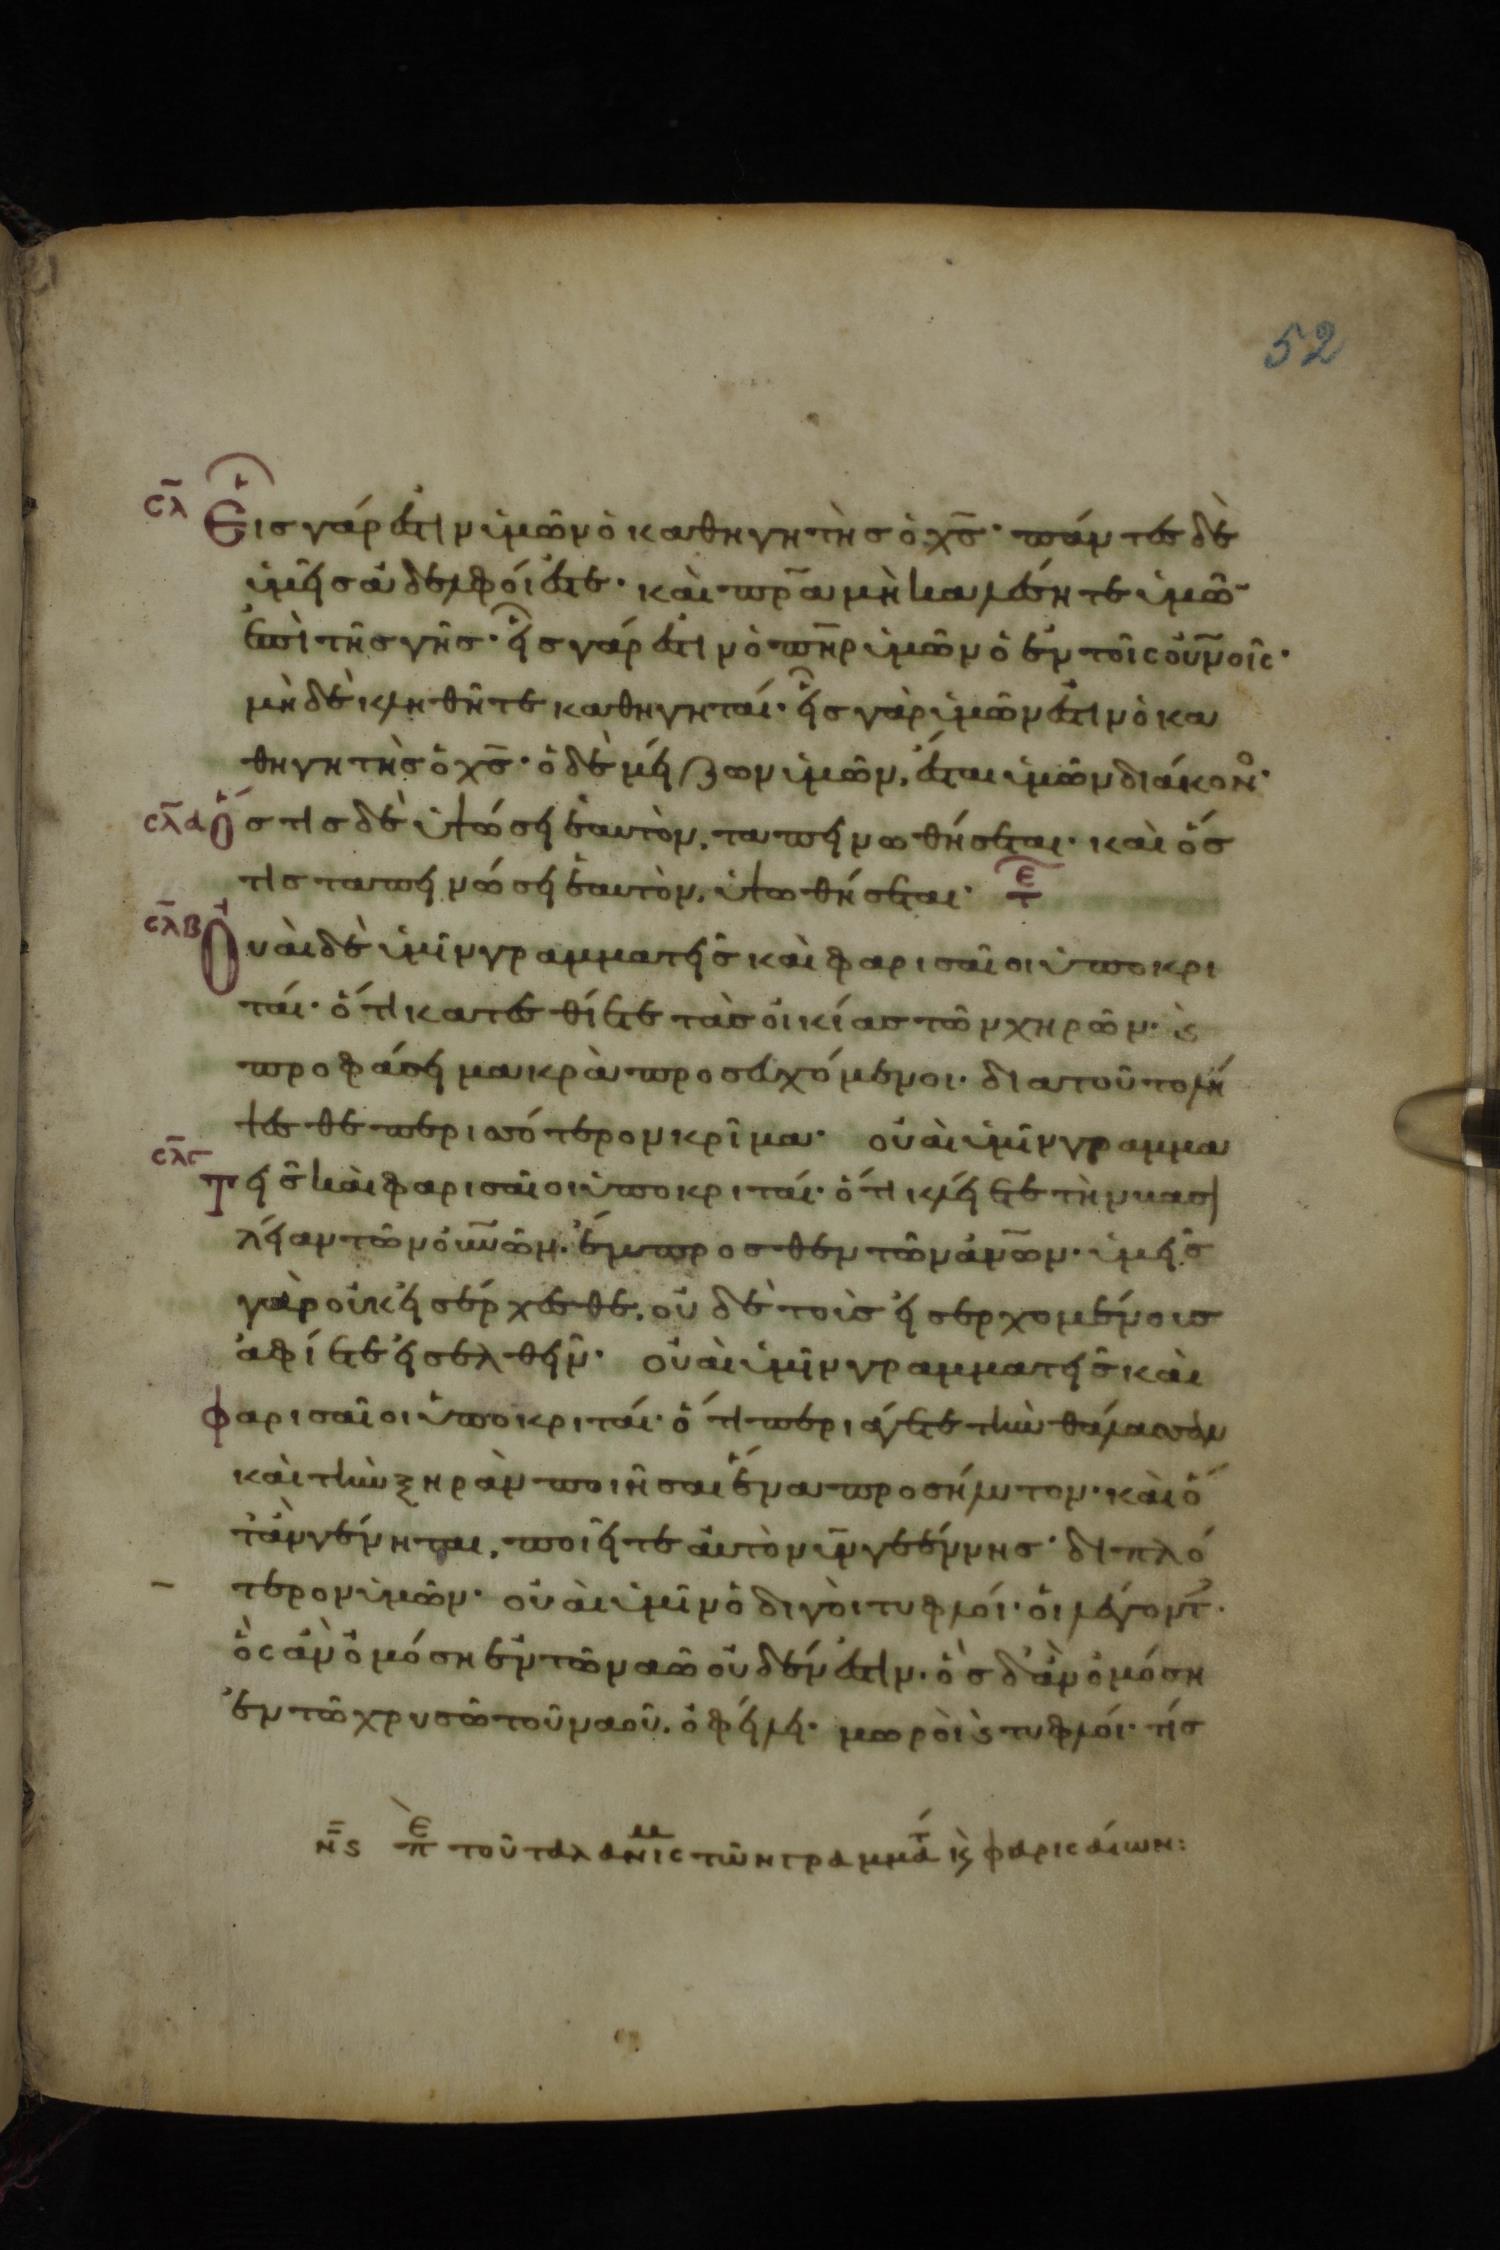 52
ϲλ̄ Εἷσ γάρ ἐστιν ὑμῶν ὁ καθηγητὴσ ὁ χ̅σ̅· πάντεσ δὲ
ὑμεῖσ ἀδελφοί ἐστε· καὶ πρ̅α μὴ καλέσητε ὑμῶ̅
ἐπὶ τῆσ γῆσ· εἷσ γάρ ἐστιν ὁ π̅η̅ρ ὑμῶν ὁ ἐν τοῖς οὐν̅οῖς·
μὴ δὲ κληθῆτε καθηγηταί· εἷσ γὰρ ὑμῶν ἐστιν ὁ κα
θηγητὴσ ὁ χ̅σ̅· ὁ δὲ μείζων ὑμῶν, ἔσται ὑμῶν διάκονο·
ϲλ̄α Ὅστισ δὲ ὑψώσει ἑαυτὸν, ταπεινωθήσεται· καὶ ὅσ
τισ ταπεινώσει ἑαυτὸν, ὑψωθήσεται· τε
ϲλ̄β Οὐαὶ δὲ ὑμῖν γραμματεῖσ καὶ φαρισαῖοι ὑποκρι
ταί· ὅτι κατεσθίετε τὰσ οἰκίασ τῶν χηρῶν· ϗ
προφάσει μακρὰ προσευχόμενοι· διατοῦτο λή
ψεσθε περισσότερον κρῖμα· οὐαὶ ὑμῖν γραμμα
ϲλ̄γ τεῖσ καὶ φαρισαῖοι ὑποκριταί· ὅτι κλείετε τὴν βασι
λείαν τῶν οὐν̅ῶν· ἔμπροσθεν τῶν ἀν̅ων· ὑμεῖσ
γὰρ οὐκ εἰσέρχεσθε, οὐδὲ τοὺσ εἰσερχομένουσ
ἀφίετε εἰσελθεῖν· οὐαὶ ὑμῖν γραμματεῖσ καὶ
φαρισαῖοι ὑποκριταί· ὅτι περιάγετε τὴν θάλασσαν
καὶ τὴν ξηρὰν ποιῆσαι ἕνα προσήλυτον· καὶ ὅ
τὰν γένηται, ποιεῖτε αὐτὸν υἱ̅ν γεέννησ· διπλό
τερον ὑμῶν· οὐαὶ ὑμῖν ὁδιγοὶ τυφλοί· οἱ λέγοντ·
ὃς ἂν ὀμόση ἐν τῶ ναῶ οὐδέν ἐστιν· ὃσ δ' ἂν ὀμόση
ἐν τῶ χρυσῶ τοῦ ναοῦ, ὀφείλει· μωροὶ ϗ τυφλοί· τίσ
ν̄ϛ πε τοῦ ταλανιςμ τῶν γραμματ ϗ φαριςαίων: